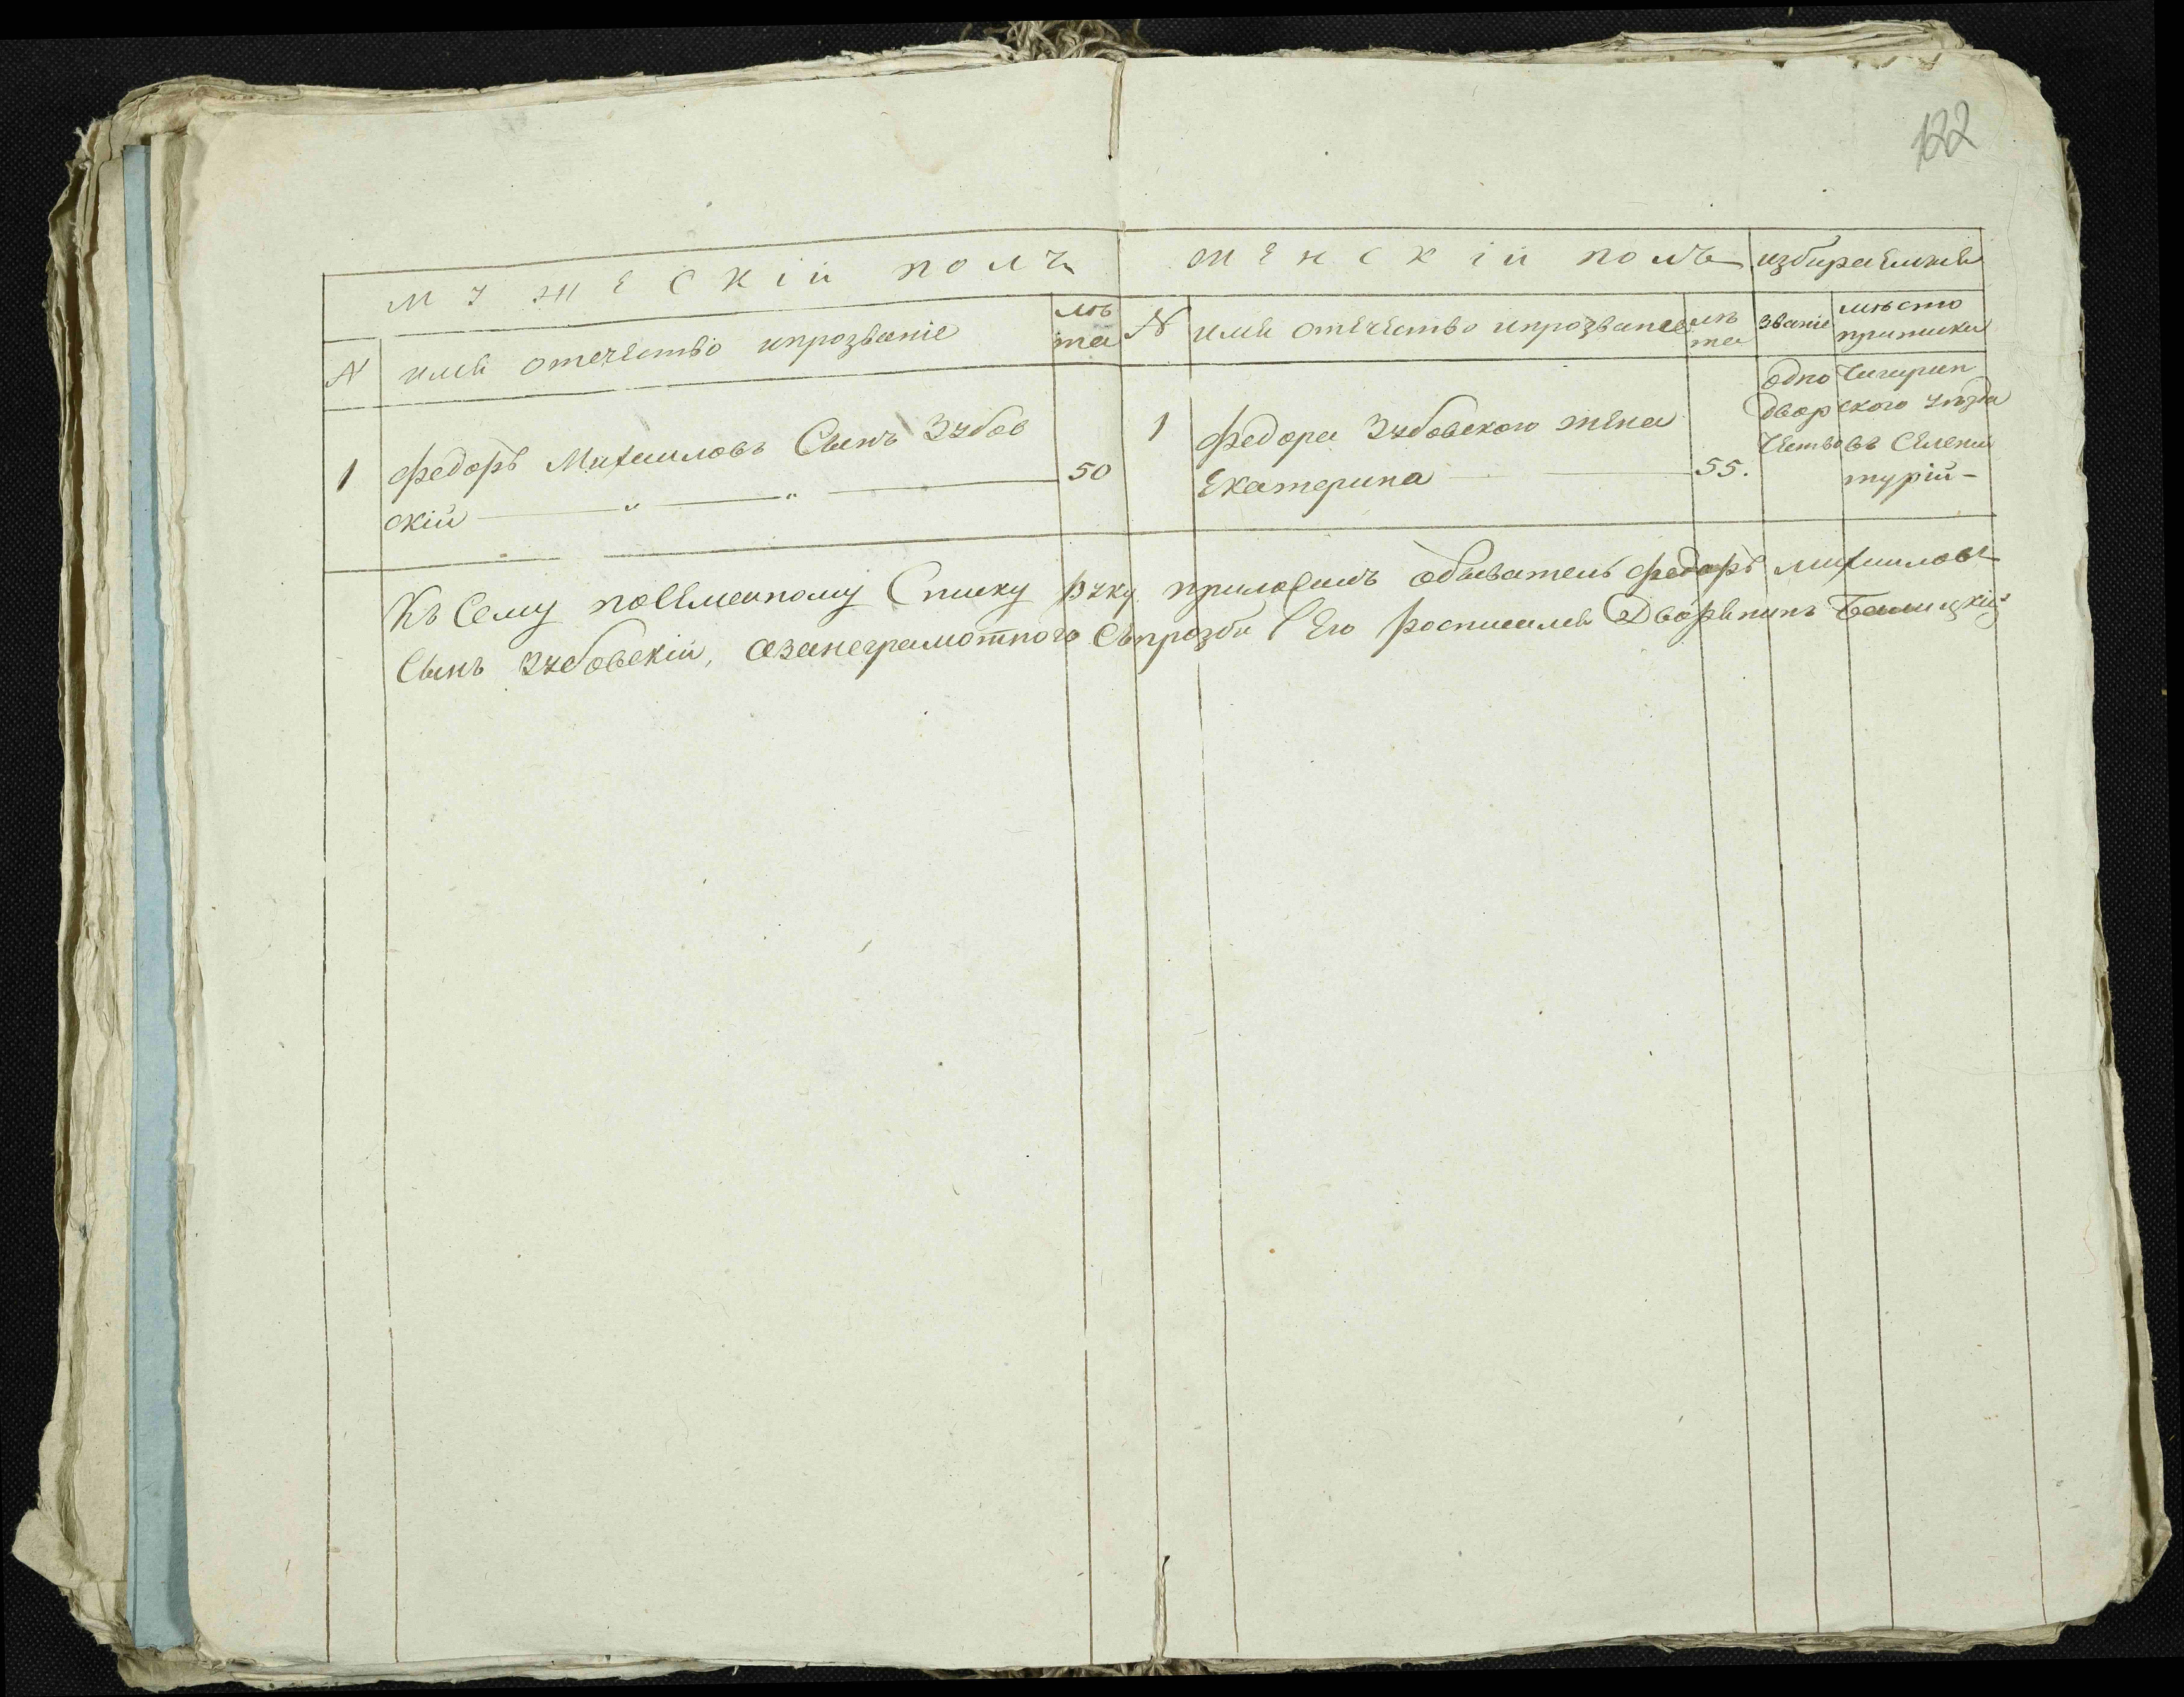 122
мужескій полъ
женскій полъ
избираемыя
N
имя отечество ипрозваніе
лѣ
та
N
имя отечество ипрозваніе
лѣ
та
Званіе
мѣсто
приписки
1
Федоръ Михаиловъ Сынъ Зубов
скій — „ — „ —
50
1
Федора Зубовского жена
Екатерина —
55.
одно
двор
чество
Чигирин
ского уѣзда
въ Селени
турій-
Къ Сему поЕменному Списку руку приложилъ обыватель Федоръ михиловъ
Сынъ Зубовскій, азанеграмотного Съпрозби Его росписался Дворянинъ Балицкій